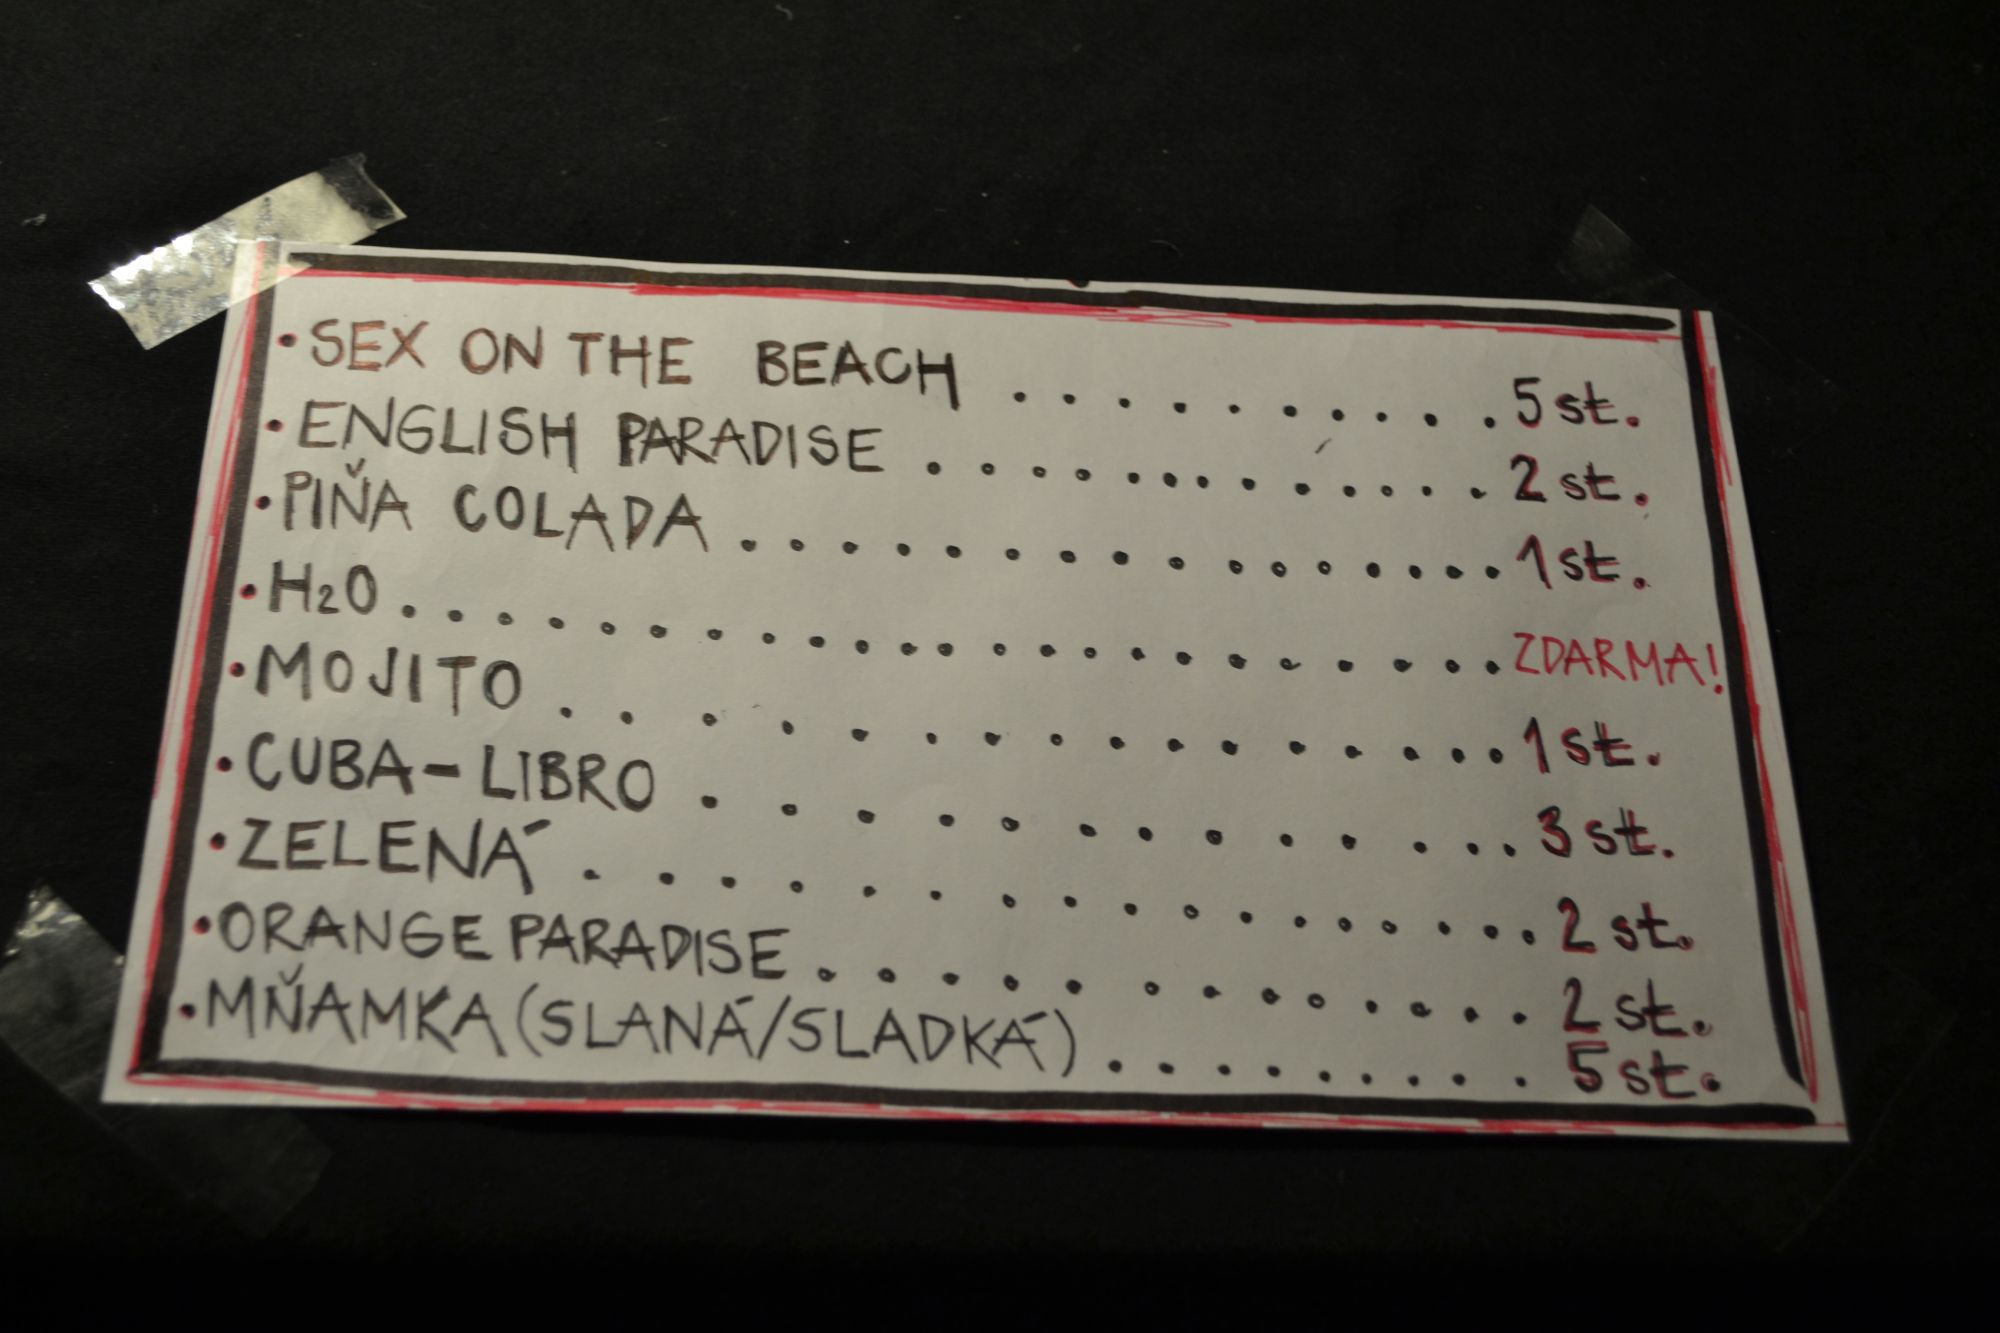 • SEX ON THE BEACH .......... 5 st.
• ENGLISH PARADISE ............. 2 st.
• PIŇA COLADA ................ 1 st.
• H2O ..................... ZDARMA!
• MOJITO ............... 1 st.
• CUBA-LIBRO ............ 3 st.
• ZELENÁ ............... 2 st.
• ORANGE PARADISE ........... 2 st.
• MŇAMKA (SLANÁ/SLADKÁ) ......... 5 st.